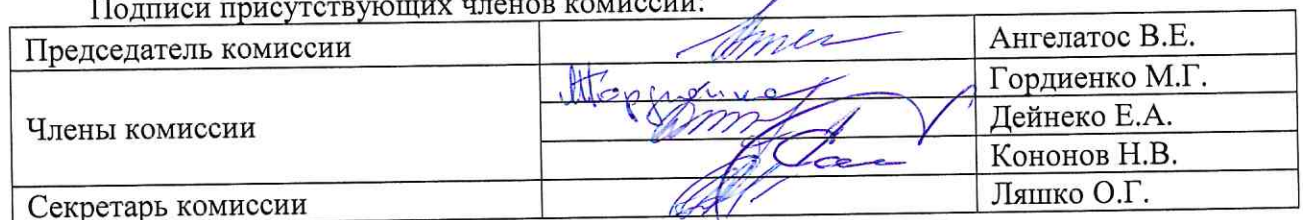 Подписи присутствующих членов комиссии:
Председатель комиссии Ангелатос В.Е.
Гордиенко М.Г.
Члены комиссии Дейнеко Е.А.
Кононов Н.В.
Секретарь комиссии Ляшко О.Г.